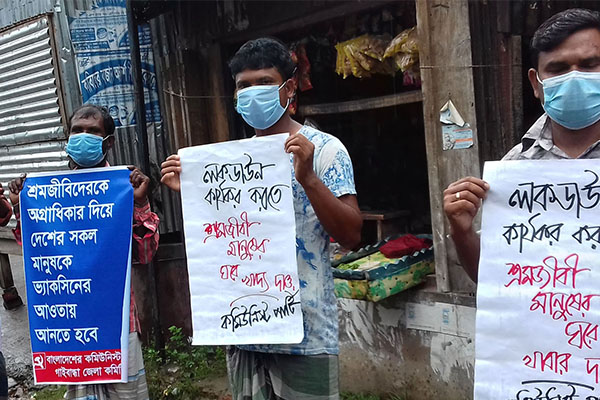 শ্রমজীবিদেরকে
অগ্রাধিকার দিয়ে
দেশের সকল
মানুষকে
ভ্যাকসিনের
আওতায়
আনতে হবে
বাংলাদেশের কমিউনিস্ট
গাইবান্ধা জেলা কমিটি
লকডাউন
কার্যকর করতে
শ্রমজীবী
মানুষের
ঘরে খাদ্য দাও,
কমিউনিস্ট পার্টি
লকডাউন
কার্যকর কর
শ্রমজীবী
মানুষের
ঘরে
খাবার দা
কমিউনিস্ট